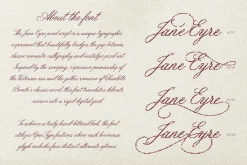 About the font
The Jane Eyre pixel script is a unique typographic
experiment that beautifully bridges the gap between
classic romantic calligraphy and nostalgic pixel art.
Inspired by the sweeping, expressive penmanship of
the Victorian era and the gothic romance of Charlotte
Brontë's classic novel, this font translates delicate
version into a rigid digital grid.
To achieve a truly hand-lettered look, the font
utilizes OpenType features where each lowercase
glyph includes four distinct alternate options.
Jane Eyre
Jane Eyre
Jane Eyre
Jane Eyre